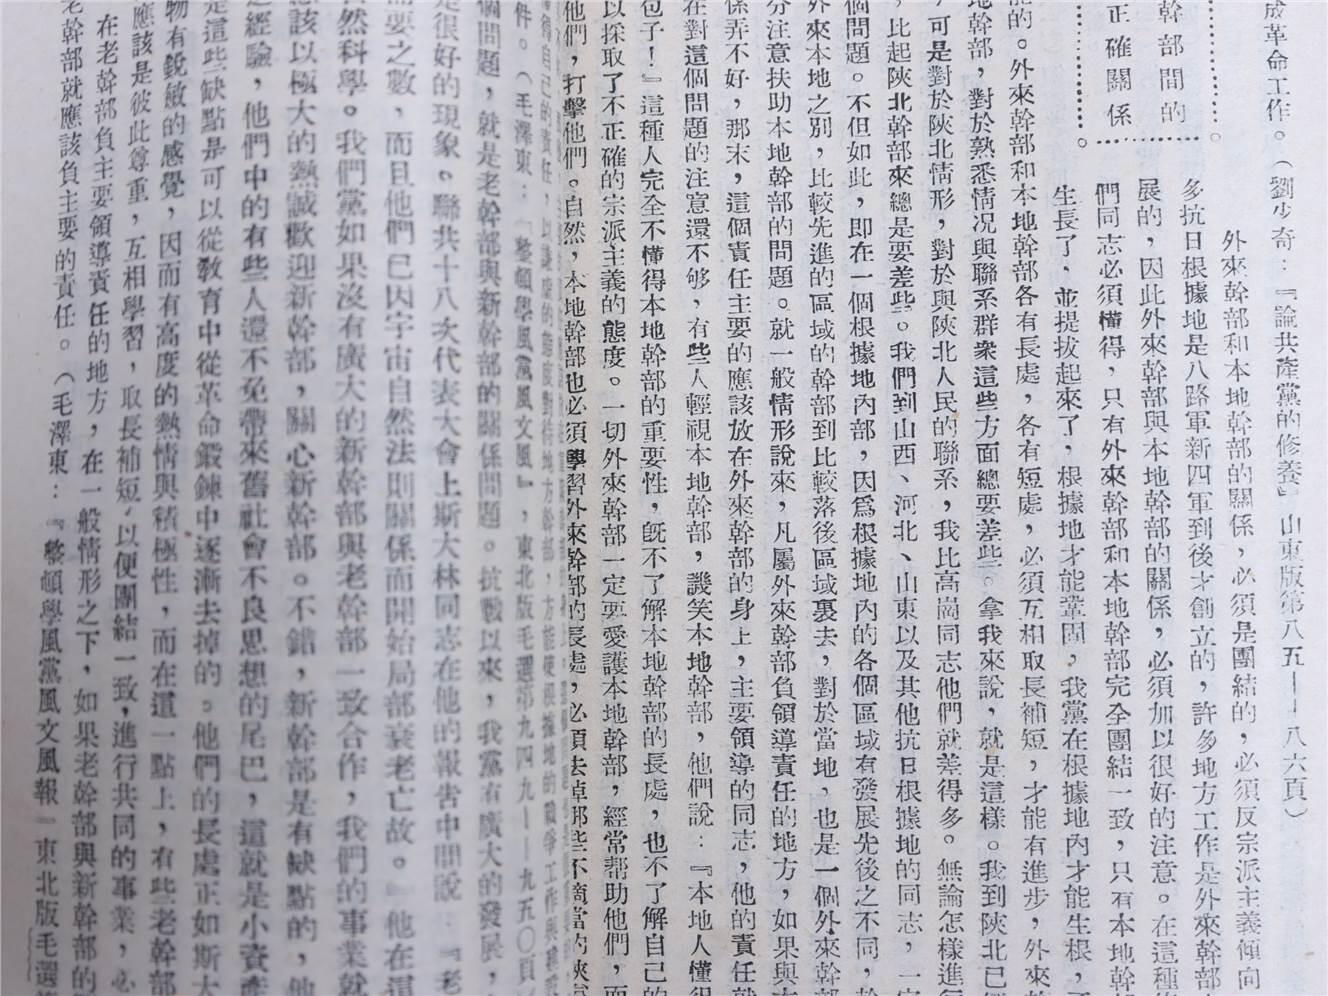 成革命工作。（劉少奇：『論共產黨的修養』山東版第八五——八六頁）
幹部間的
正確關係
外來幹部和本地幹部的關係，必須是團結的，必須反宗派主義傾向
多抗日根據地是八路軍新四軍到後才創立的，許多地方工作是外來幹部
展的，因此外來幹部與本地幹部的關係，必須加以很好的注意。在這種
們同志必須懂得，只有外來幹部和本地幹部完全團結一致，只有本地幹
生長了，並提拔起來了，根據地才能鞏固，我黨在根據地內才能生根，
能的。外來幹部和本地幹部各有長處，各有短處，必須互相取長補短，才能有進步，外來的
地幹部，對於熟悉情况與聯系群衆這些方面總要差些。拿我來說，就是這樣。我到陝北已
，可是對於陝北情形，對於與陝北人民的聯系，我比高崗同志他們就差得多。無論怎樣進
，比起陝北幹部來總是要差些。我們到山西、河北、山東以及其他抗日根據地的同志，一
個問題。不但如此，即在一個根據地內部，因爲根據地內的各個區域有發展先後之不同，幹
外來本地之別，比較先進的區域的幹部到比較落後區域裏去，對於當地，也是一個外來幹部
分注意扶助本地幹部的問題。就一般情形說來，凡屬外來幹部負領導責任的地方，如果與
係弄不好，那末，這個責任主要的應該放在外來幹部的身上，主要領導的同志，他的責任就
在對這個問題的注意還不够，有些人輕視本地幹部，譏笑本地幹部，他們說：『本地人懂得
包子！』這種人完全不懂得本地幹部的重要性，既不了解本地幹部的長處，也不了解自己的
以採取了不正確的宗派主義的態度。一切外來幹部一定要愛護本地幹部，經常帮助他們，而
他們，打擊他們。自然，本地幹部也必須學習外來幹部的長處，必須去掉那些不適當的狹
得自己的責任，以謙虛的態度對待地方幹部，方能使根據地的戰爭工作與
件。（毛澤東：『整頓學風黨風文風』，東北版毛選第九四九——九五〇頁
個問題，就是老幹部與新幹部的關係問題。抗戰以來，我黨有廣大的發展，
是很好的現象。聯共十八次代表大會上斯大林同志在他的報告中間說：『老
需要之數，而且他們已因宇宙自然法則關係而開始局部衰老亡故。』他在這
然科學。我們黨如果沒有廣大的新幹部與老幹部一致合作，我們的事業就
應該以極大的熱誠歡迎新幹部，關心新幹部。不錯，新幹部是有缺點的，他
經驗，他們中的有些人還不免帶來舊社會不良思想的尾巴，這就是小資產
是這些缺點是可以從敎育中從革命鍛鍊中逐漸去掉的。他們的長處正如斯大
物有銳敏的感覺，因而有高度的熱情與積極性，而在這一點上，有些老幹部
應該是彼此尊重，互相學習，取長補短，以便團結一致，進行共同的事業，必
在老幹部負主要領導責任的地方，在一般情形之下，如果老幹部與新幹部的
老幹部就應該負主要的責任。（毛澤東：『整頓學風黨風文風報』東北版毛選